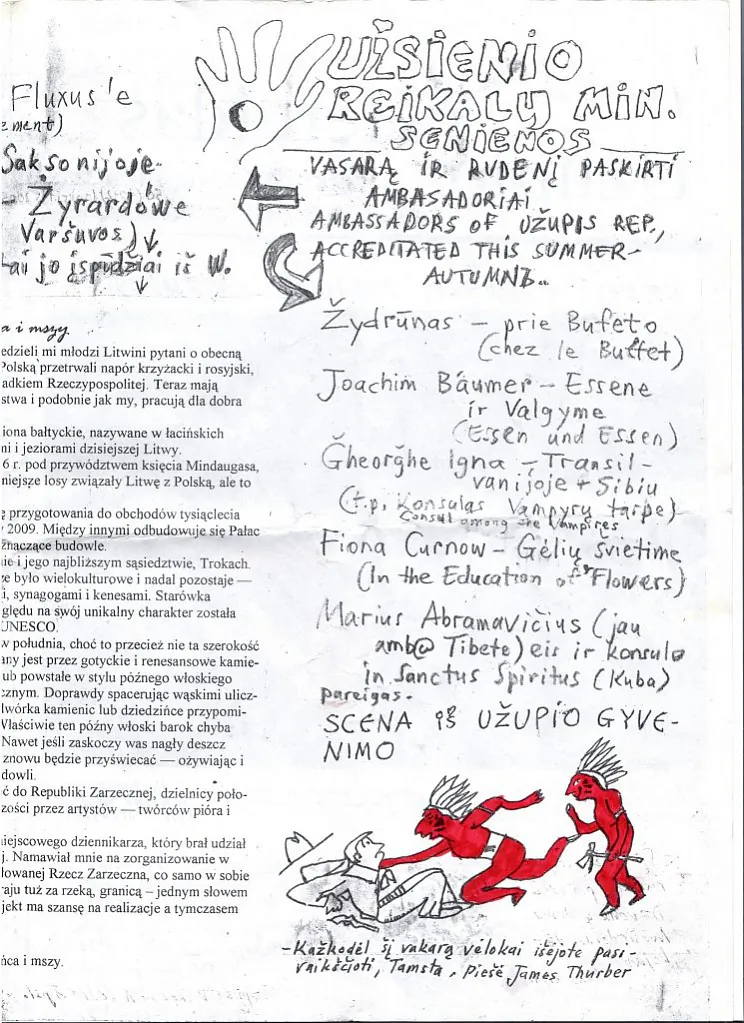 Fluxus'e
ment)
Saksonijoje-
- Žyrardówe
Varšuvos)
tai jo įspūdžiai iš W.
a i mszy.
edzieli mi młodzi Litwini pytani o obecną
Polską przetrwali napór krzyżacki i rosyjski,
adkiem Rzeczypospolitej. Teraz mają
stwa i podobnie jak my, pracują dla dobra
iona bałtyckie, nazywane w łacińskich
ni i jeziorami dzisiejszej Litwy.
6 r. pod przywództwem księcia Mindaugasa,
niejsze losy związały Litwę z Polską, ale to
ę przygotowania do obchodów tysiąclecia
2009. Między innymi odbudowuje się Pałac
znaczące budowle.
ie i jego najbliższym sąsiedztwie, Trokach.
że było wielokulturowe i nadal pozostaje —
i, synagogami i kenesami. Starówka
ględu na swój unikalny charakter została
UNESCO.
w południa, choć to przecież nie ta szerokość
any jest przez gotyckie i renesansowe kamie-
ub powstałe w stylu późnego włoskiego
cznym. Doprawdy spacerując wąskimi ulicz-
dwórka kamienic lub dziedzińce przypomi-
Właściwie ten późny włoski barok chyba
Nawet jeśli zaskoczy was nagły deszcz
znowu będzie przyświecać — ożywiając i
dowli.
ć do Republiki Zarzecznej, dzielnicy poło-
zości przez artystów — twórców pióra i
iejscowego dziennikarza, który brał udział
j. Namawiał mnie na zorganizowanie w
lowanej Rzecz Zarzeczna, co samo w sobie
raju tuż za rzeką, granicą – jednym słowem
jekt ma szansę na realizacje a tymczasem
ńca i mszy.
UŽSIENIO
REIKALŲ MIN.
SENIENOS
VASARĄ IR RUDENĮ PASKIRTI
AMBASADORIAI
AMBASSADORS OF UŽUPIS REP.,
ACCREDITATED THIS SUMMER-
AUTUMN..
Žydrūnas – prie Bufeto
(chez le Buffet)
Joachim Bäumer – Essene
ir Valgyme
(Essen und Essen)
Gheorghe Igna – Transil-
vanijoje + Sibiu
(t.p. Konsulas Vampyrų tarpe)
Consul among the Vampires
Fiona Curnow – Gėlių švietime
(In the Education of Flowers)
Marius Abramavičius (jau
amb@ Tibete) eis ir konsulo
in Sanctus Spiritus (Kuba)
pareigas.
SCENA IŠ UŽUPIO GYVE-
NIMO
- Kažkodėl šį vakarą vėlokai išėjote pasi-
vaikščioti, Tamsta. Piešė James Thurber